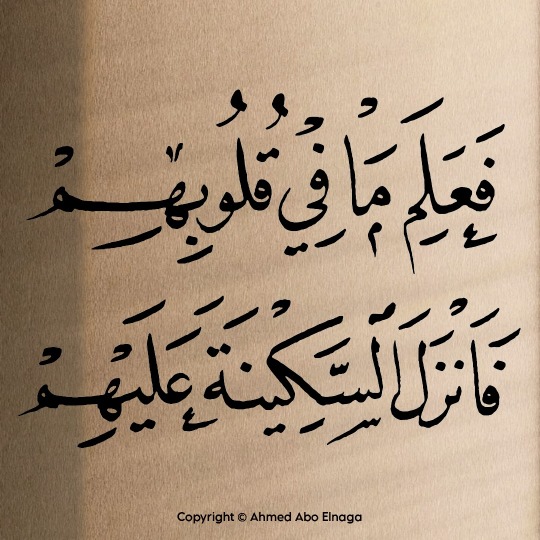 فَعَلِمَ مَا فِيْ قُلُوبِهِمْ
فَأَنْزَلَ السَّكِيْنَةَ عَلَيْهِمْ
Copyright © Ahmed Abo Elnaga